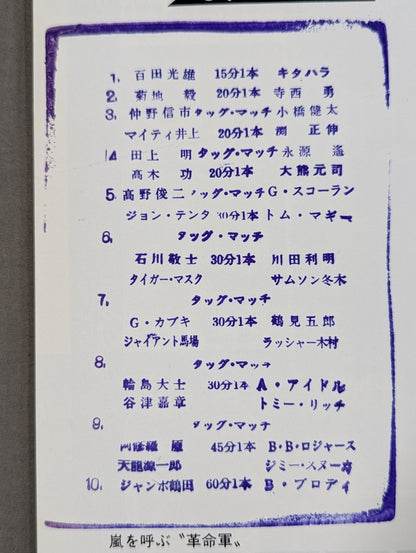 1. 百田光雄 15分1本 キタハラ
2. 菊地 毅 20分1本 寺西 勇
3. 仲野信市 タッグ・マッチ 小橋健太
マイティ井上 20分1本 渕 正伸
4 田上 明 タッグ・マッチ 永源 遙
高木 功 20分1本 大熊元司
5. 高野俊二 タッグ・マッチ G・スコーラン
ジョン・テンタ 30分1本 トム・マギー
6. タッグ・マッチ
石川敬士 30分1本 川田利明
タイガー・マスク サムソン冬木
7. タッグ・マッチ
G・カブキ 30分1本 鶴見五郎
ジャイアント馬場 ラッシャー木村
8. タッグ・マッチ
輪島大士 30分1本 A・アイドル
谷津嘉章 トミー・リッチ
9. タッグ・マッチ
阿修羅 原 45分1本 B・B・ロジャース
天龍源一郎 ジミー・スヌーカ
10. ジャンボ鶴田 60分1本 B・ブロディ
嵐を呼ぶ〝革命軍〟